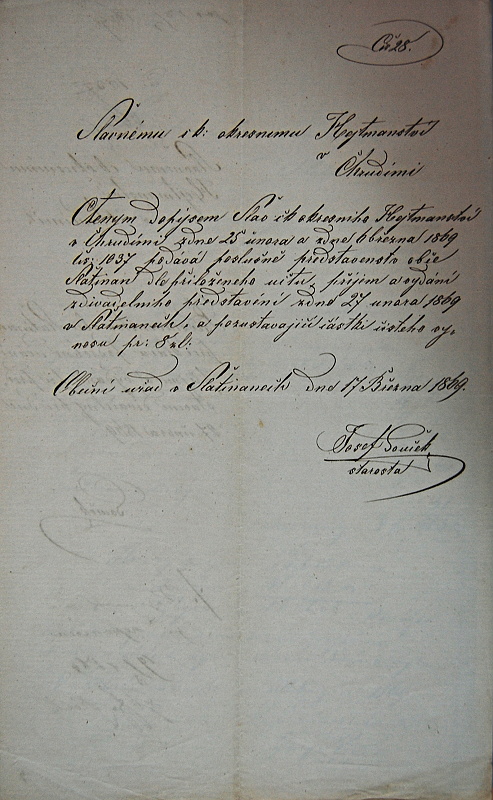 Čís 28.
Slavnému i k: okresnímu Hejtmanství
v Chrudimi
Cteným dopisem Slav i k okresního Hejtmanství
v Chrudimi zdne 25 února a zdne 6 března 1869
čís: 1037 podává poslušně představenstvo obce
Slatinan dle přiloženého učtu, přijem a vydání
zdivadelního představení zdne 27 února 1869
v Slatinanech, a pozustavající částki čistého vy-
nosu pr: 8 zl:
Obecní uřad v Slatinanech dne 17 Března 1869.
Josef
starosta